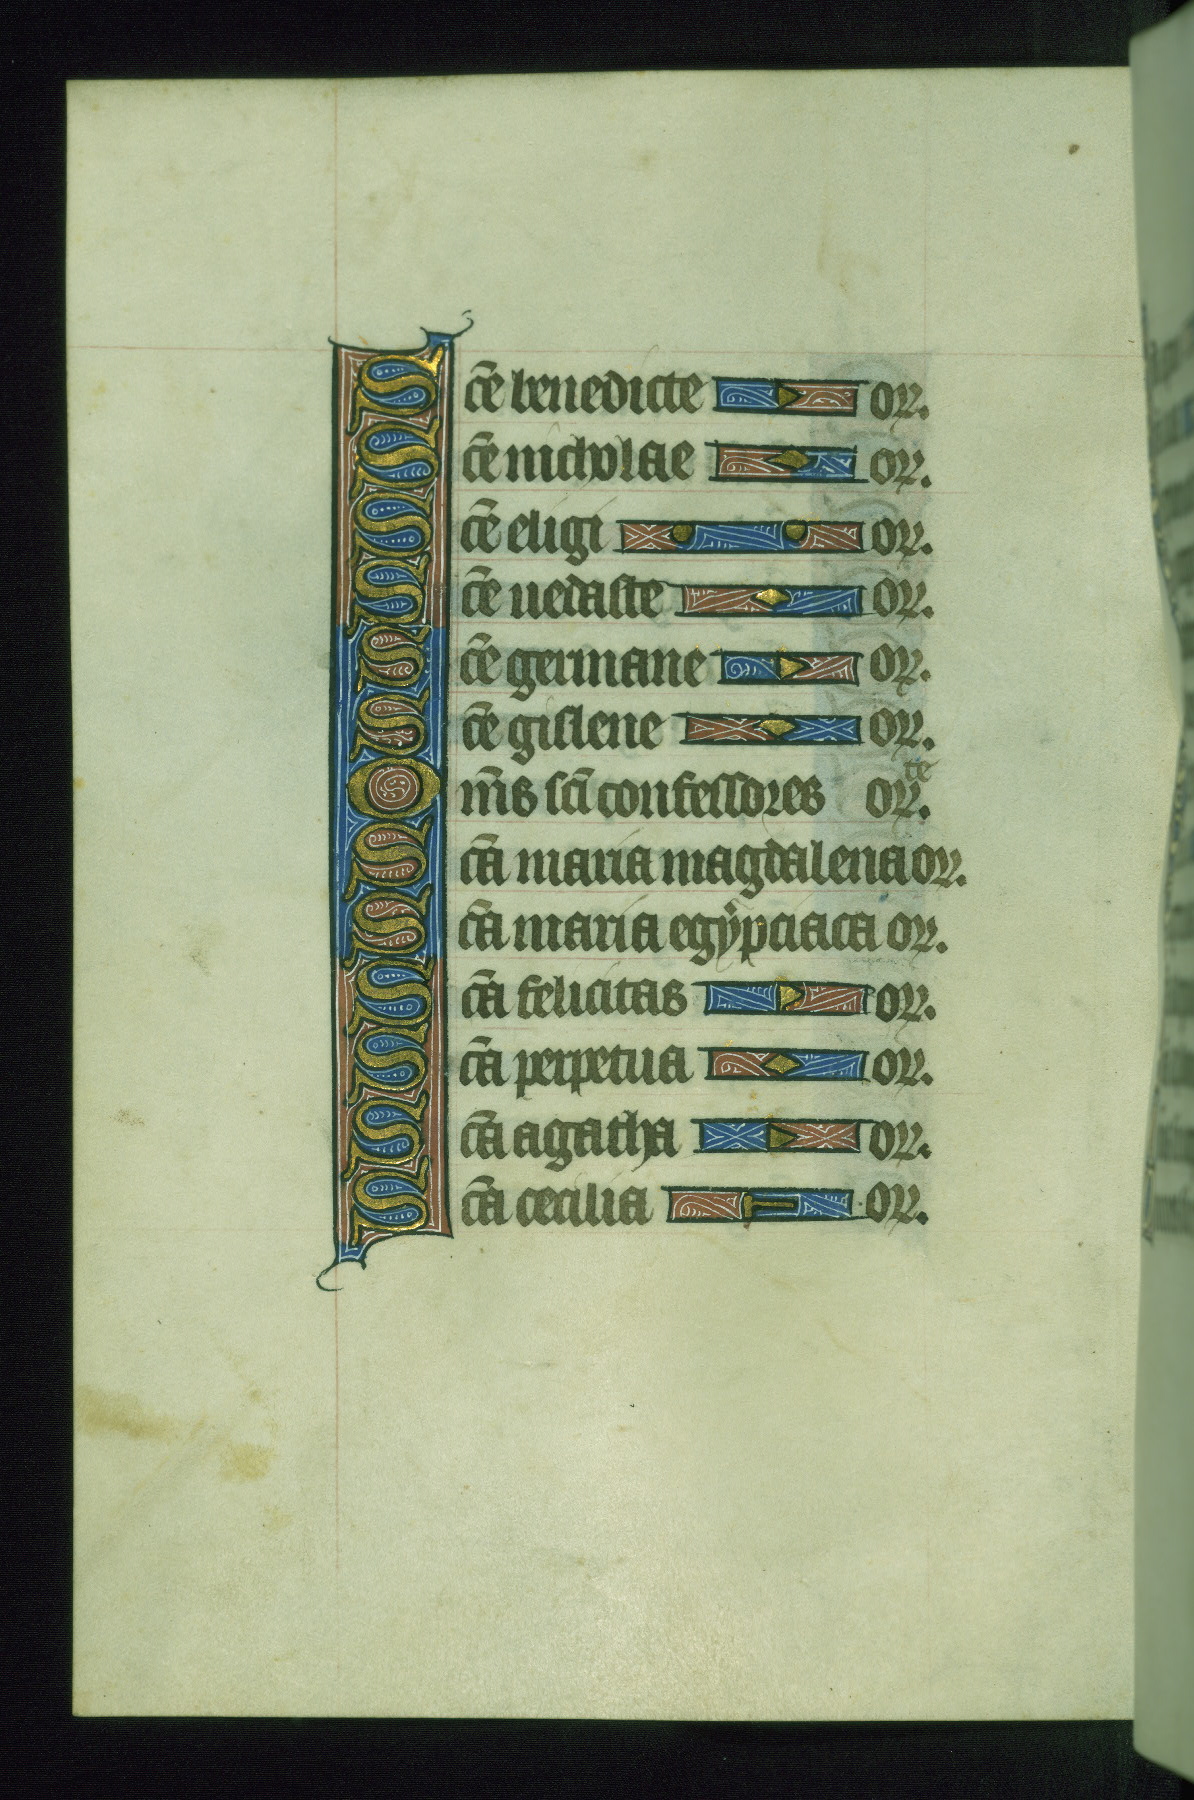 Sc̄e benedicte or.
Sc̄e nicholae or.
Sc̄e eligi or.
Sc̄e uedaste or.
Sc̄e germane or.
Sc̄e gislene or.
Om̄s sc̄i confessores or.te
Sc̄a maria magdalena or.
Sc̄a maria egypciaca or.
Sc̄a felicitas or.
Sc̄a perpetua or.
Sc̄a agatha or.
Sc̄a cecilia or.